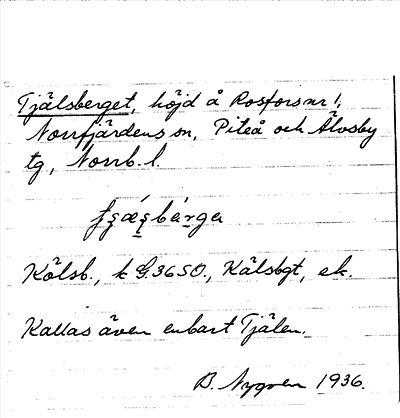 Tjälsberget, höjd å Rosforsnr 1,
Norrfjärdens sn, Piteå och Älvsby
tg, Norrb. l.
Kölsb., k G.3650., Kälsbgt, ek.
Kallas även enbart Tjälen.
B. Nygren 1936.